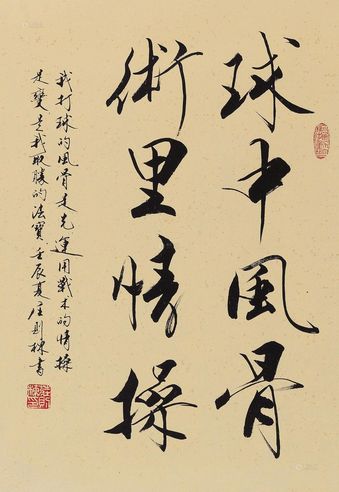 球中風骨
術里情操
我打球的風骨是克運用戰术的情操
是變是我取勝的法寶壬辰夏庄則棟書